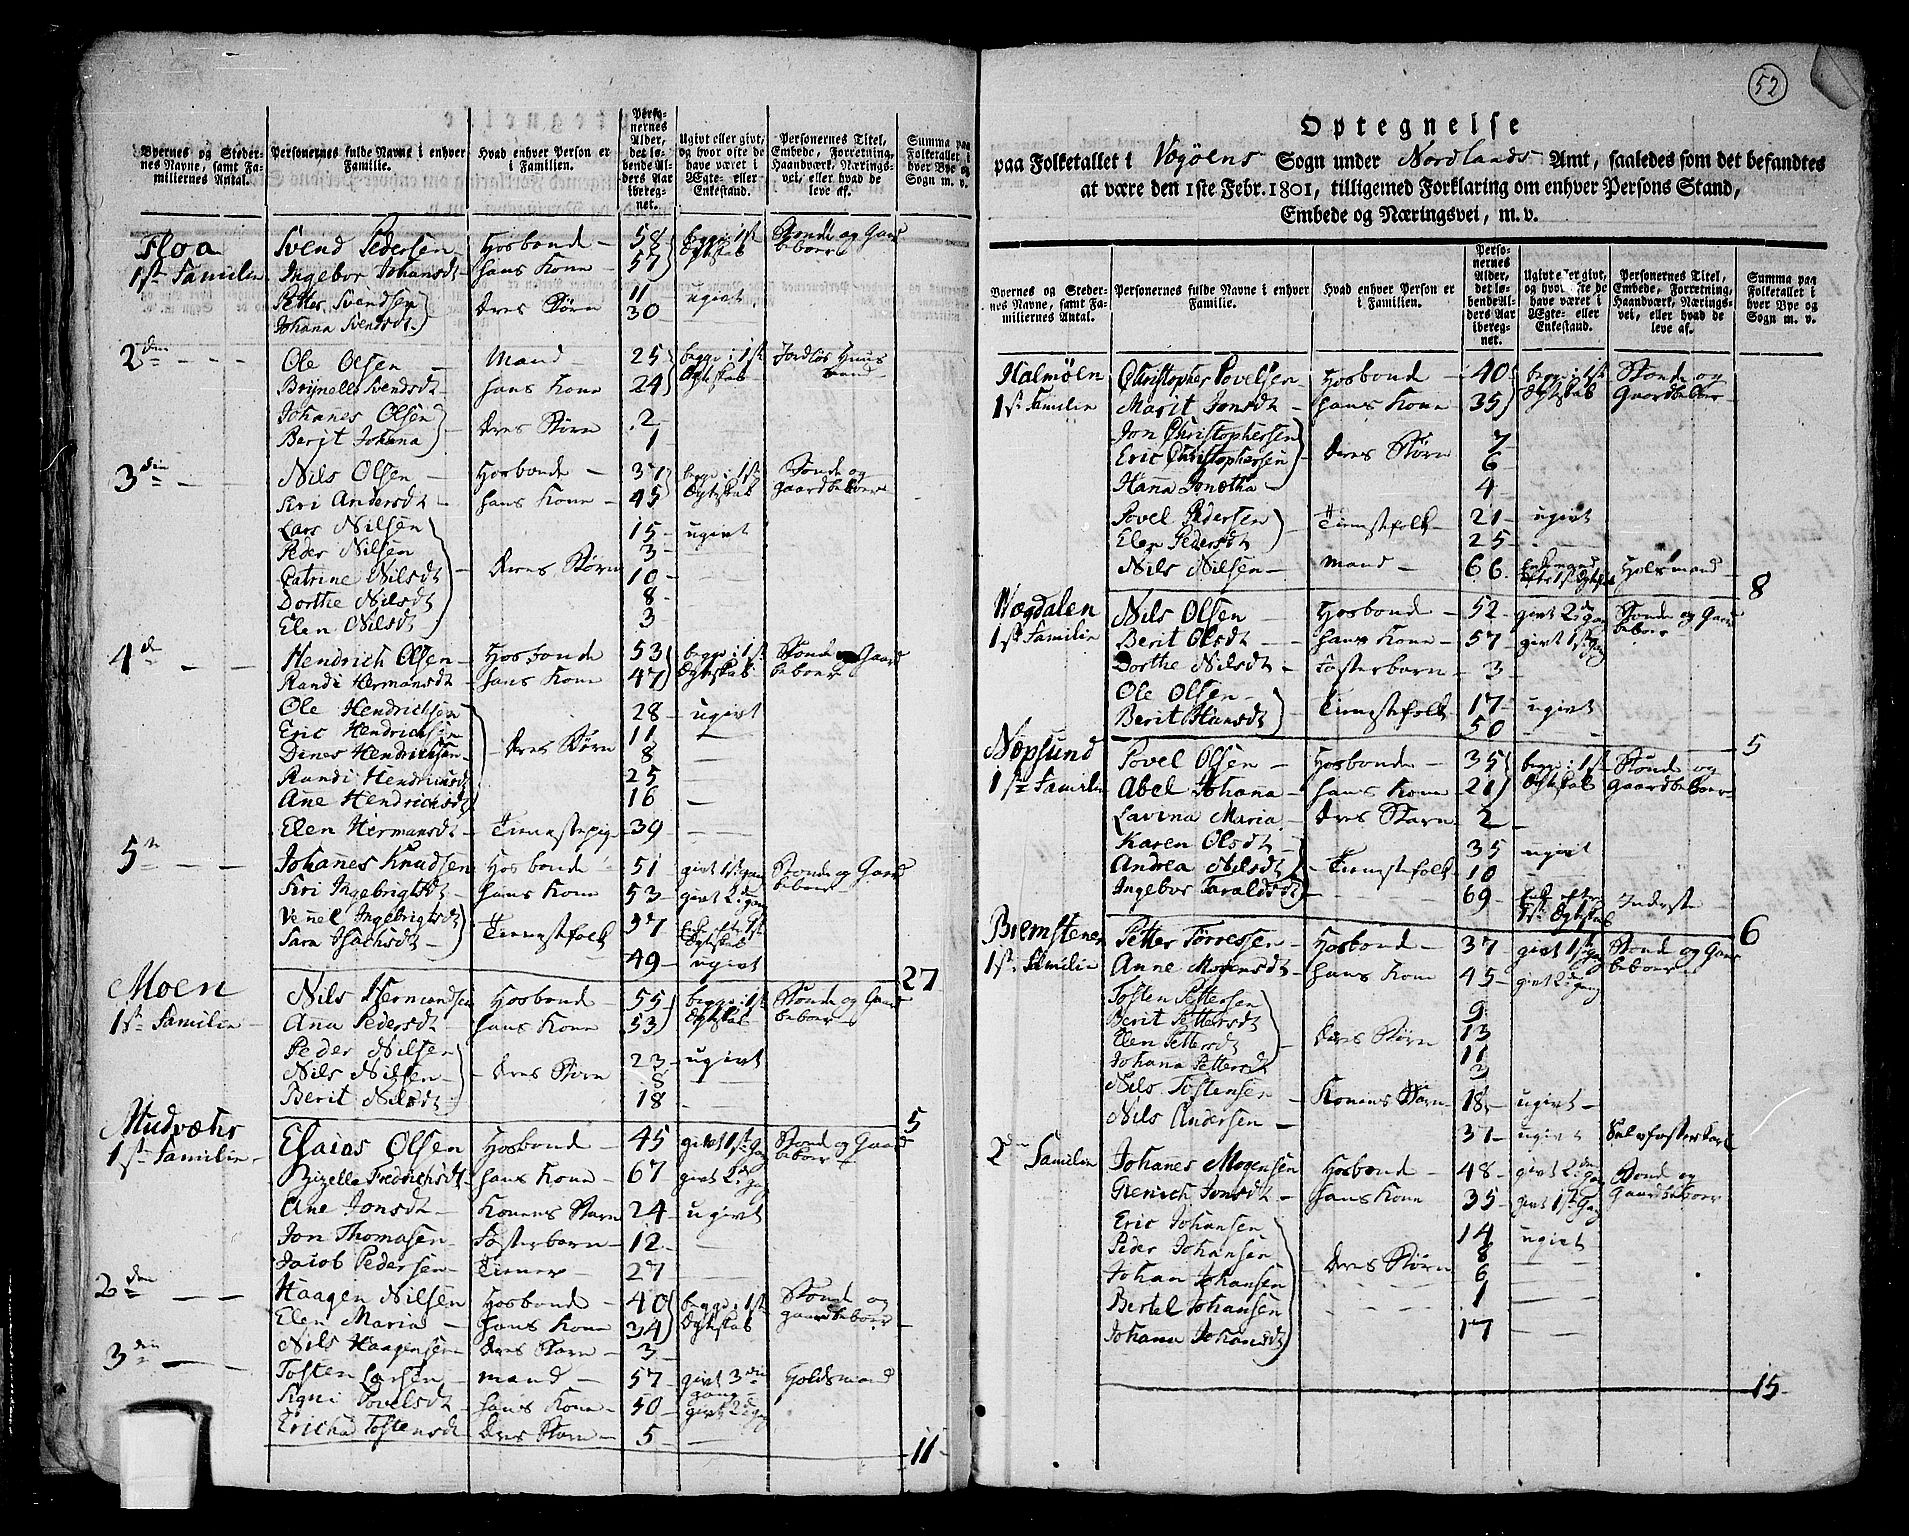 Byernes og Stedernes Navne, samt Familiernes Antal.
Personernes fulde Navne i enhver Familie.
Hvad enhver Person er i Familien.
Personernes Alder, det løbende Alders Aar iberegnet.
Ugivt eller givt, og hvor ofte de have været i Ægte- eller Enkestand.
Personernes Titel, Embede, Forretning, Haandværk, Næringsvei, eller hvad de leve af.
Summa paa Folketallet i hver Bye og Sogn m. v.
Floa Svend Pedersen Hosbonde 58 begge i 1st Bonde og Gaard
1st Familie Ingebor Johansdt hans Kone 57 Ægteskab beboer
Petter Svendsen Deres Børn 11 ugivt
Johana Svendsdt 30
2den Ole Olsen Mand 25 begge i 1st Jordløs Huus
Brynelle Svendsdt hans Kone 24 Ægteskab mand
Johanes Olsen Deres Børn 2
Berit Johana 1
3die Nils Olsen Hosbonde 37 begge i 1st Bonde og
Siri Andersdt hans Kone 45 Ægteskab gaardbeboer
Lars Nilsen 15 ugivt
Peder Nilsen 3
Catrine Nilsdt Deres Børn 10
Dorthe Nilsdt 8
Elen Nilsdt 3
4de Hendrich Olsen Hosbonde 53 begge i 1st Bonde og Gaard
Randi Hermansdt hans Kone 47 Ægteskab beboer
Ole Hendrichsen 28 ugivt
Eric Hendrichsen 11
Dines Hendrichsen Deres Børn 8
Randi Hendrichsdt 25
Ane Hendrichsdt 16
Elen Hermansdt Tienestepig 39
5te Johannes Knudsen Hosbonde 51 givt 1st gang Bonde og Gaard
Siri Ingebrigtsdt hans Kone 53 givt 2den gang beboer
Ingebrigtsdt Tienestefolk 37 Enke efter 1st Ægteskab
Sara Isachsdt 49 ugivt
27
Moen Nils Hermandsen Hosbonde 55 begge i 1st Bonde og Gaard
1st Familie Anna Pedersdt hans Kone 53 Ægteskab beboer
Peder Nilsen 23 ugivt
Nils Nilsen Deres Børn 8
Berit Nilsdt 18
5
Mudvæter Elaias Olsen Hosbonde 45 givt 1st Gang Bonde og Gaard
1st Familie Fredrichsdt hans Kone 67 givt 2den Gang beboer
Ane Jonsdt Konens Barn 24 ugivt
Jon Thomasen Fosterbarn 12
Jacob Pedersen Tiener 27
2den Haagen Nilsen Hosbonde 40 begge i 1st Bonde og
Elen Maria hans Kone 34 Ægteskab gaardbeboer
Nils Haagensen Deres Barn 3
3die Tosten Larsen mand 57 givt 3die gang Holdsmand
Signi Povelsdt hans Kone 50 givt 2den gang
Ericha Tostensdt Deres Barn 5
11
52
Optegnelse
paa Folketallet i Vogöens Sogn under Nordlands Amt, saaledes som det befandtes
at være den 1ste Febr. 1801, tilligemed Forklaring om enhver Persons Stand,
Embede og Næringsvei, m. v.
Byernes og Stedernes Navne, samt Familiernes Antal.
Personernes fulde Navne i enhver Familie.
Hvad enhver Person er i Familien.
Personernes Alder, det løbende Alders Aar iberegnet.
Ugivt eller givt, og hvor ofte de have været i Ægte- eller Enkestand.
Personernes Titel, Embede, Forretning, Haandværk, Næringsvei, eller hvad de leve af.
Summa paa Folketallet i hver Bye og Sogn m. v.
Halmöen Christopher Povelsen Hosbond 40 begge i 1st Bonde og
1st Familie Marit Jonsdt hans Kone 35 Ægteskab Gaardbeboer
Jon Christophersen 7
Eric Christophersen Deres Børn 6
Hanna Jonetha 4
Povel Pedersen Tienestefolk 21 ugivt
Elen Pedersdt 25
Nils Nilsen mand 66 Enkemand efter 1st Ægteskab Holsmand
8
Wægdalen Nils Olsen Hosbond 52 givt 2den Gang Bonde og Gaard
1st Familie Berit Olsdt hans Kone 57 givt 1st Gang beboer
Dorthe Nilsdt Fosterbarn 3
Ole Olsen Tienestefolk 17 ugivt
Berit Hansdt 50
5
Næpsund Povel Olsen Hosbonde 35 begge i 1st Bonde og
1st Familie Abel Johana hans Kone 21 Ægteskab Gaardbeboer
Lavina Maria Deres Barn 2
Karen Olsdt 35 ugivt
Andrea Nilsdt Tienestefolk 10
Ingebor Taraldsdt 69 Enke efter 1st Ægteskab Inderste
6
Bremstenen Petter Torressen Hosbond 37 givt 1st Gang Bonde og Gaard
1st Familie Anne Mogensdt hans Kone 45 givt 2den gang beboer
Tosten Pettersen 9
Berit Pettersdt Deres Børn 13
Elen Pettersdt 11
Johana Pettersdt 3
Nils Tostensen Konens Barn 18 ugivt
Nils Andersen 37 ugivt Selvfosterkarl
2den Familie Johanes Mogensen Hosbond 48 givt 2den Gang Bonde og
Jonsdt hans Kone 35 givt 1st Gang Gaardbeboer
Eric Johansen 14 ugivt
Peder Johansen 8
Johan Johansen Deres Børn 6
Bertel Johansen 1
Johana Johansdt 17
15